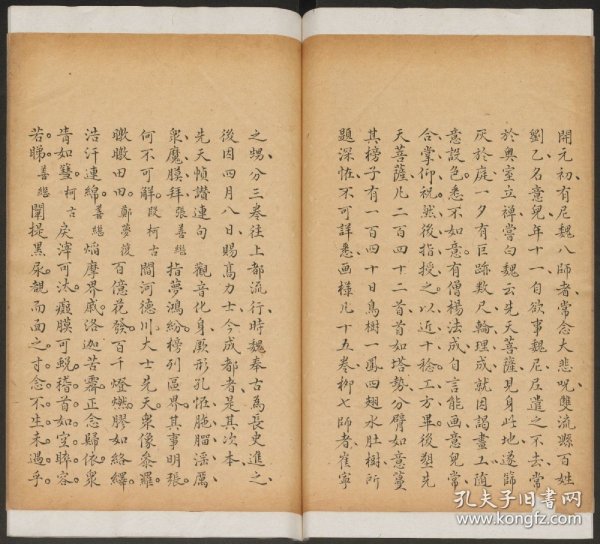 開元初有尼魏八師者常念大悲呪雙流縣百姓
劉乙名意兒年十一自欲事魏尼尼遣之不去常
於奧室立禪嘗白魏云先天菩薩見身此地遂篩
灰於庭一夕有巨跡數尺輪理成就因謁畫工隨
意設色悉不如意有僧楊法成自言能画意兒常
合掌仰祝然後指授之以近十稔工方畢後塑先
天菩薩凡二百四十二首首如塔勢分臂如意蔓
其榜子有一百四十日鳥樹一鳳四翅水肚樹所
題深怪不可詳悉画樣凡十五卷柳七師者崔寧
之甥分三卷往上都流行時魏奉古爲長史進之
後因四月八日賜髙力士今成都者是其次本
先天幀讚連句 觀音化身厥形孔怪胣腦淫厲
衆魔膜拜。張善繼 指夢鴻紛榜列區界其事明張
何不可解。段柯古 閻河德川大士先天衆像參羅。
瞰瞰田田。鄭夢復 百億花發百千燈燃膠如絡繹
浩汗連綿。善繼 焰摩界戚洛迦苦霽正念歸依衆
青如蠥。柯古 戾滓可汰癡膜可蛻稽首如空睟容
若睇。善繼 闡提黑尿覩而面之寸念不生未遇乎。
孔夫子旧书网
www.kongfz.com